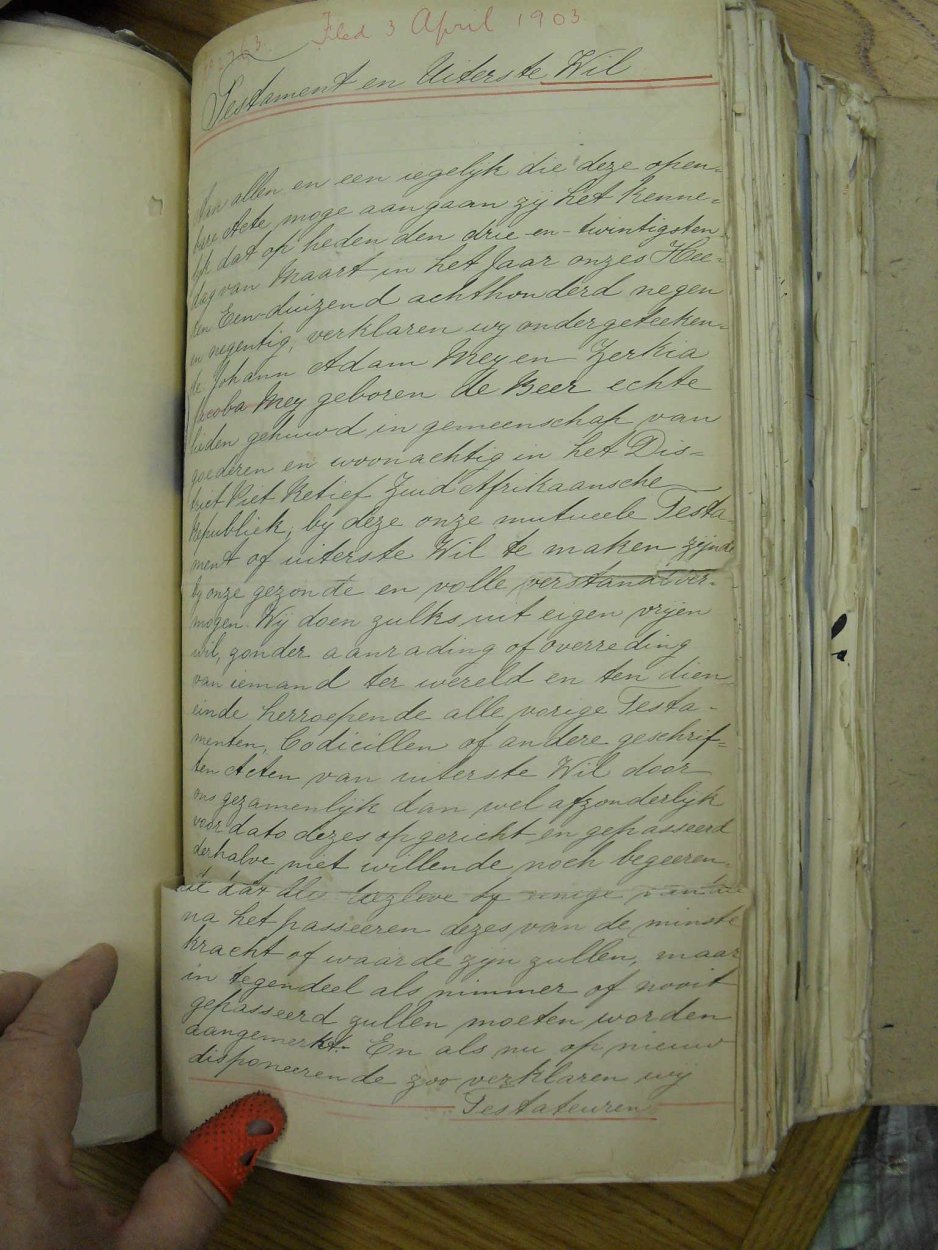 Filed 3 April 1903
Testament en Uiterste Wil
Aan allen en een iegelijk die deze open-
bare Acte moge aangaan zij het kenne-
lijk dat op heden den drie-en-twintigsten
dag van Maart in het Jaar onzes Hee-
ren Een-duizend achthonderd negen
en negentig, verklaren wy ondergeteeken-
de Johann Adam Mey en Zerkia
Jacoba Mey geboren de Beer echte
lieden gehuwd in gemeenschap van
goederen en woonachtig in het Dis-
trict Piet Retief Zuid Afrikaansche
Republiek, by deze onze mutueele Testa-
ment of uiterste Wil te maken zynde
by onze gezonde en volle verstand ver-
mogen. Wij doen zulks uit eigen vrijen
wil, zonder aanrading of overreding
van iemand ter wereld en ten dien
einde herroepende alle vorige Testa-
menten, Codicillen of andere geschrif-
ten Acten van uiterste Wil door
ons gezamenlijk dan wel afzonderlijk
voor dato dezes opgericht en gepasseerd
derhalve niet willende noch begeeren-
de dat
na het passeeren dezes van de minste
kracht of waarde zyn zullen, maar
in tegendeel als nimmer of nooit
gepasseerd zullen moeten worden
aangemerkt. En als nu op nieuw
disponeerende zoo verklaren wij
Testateuren